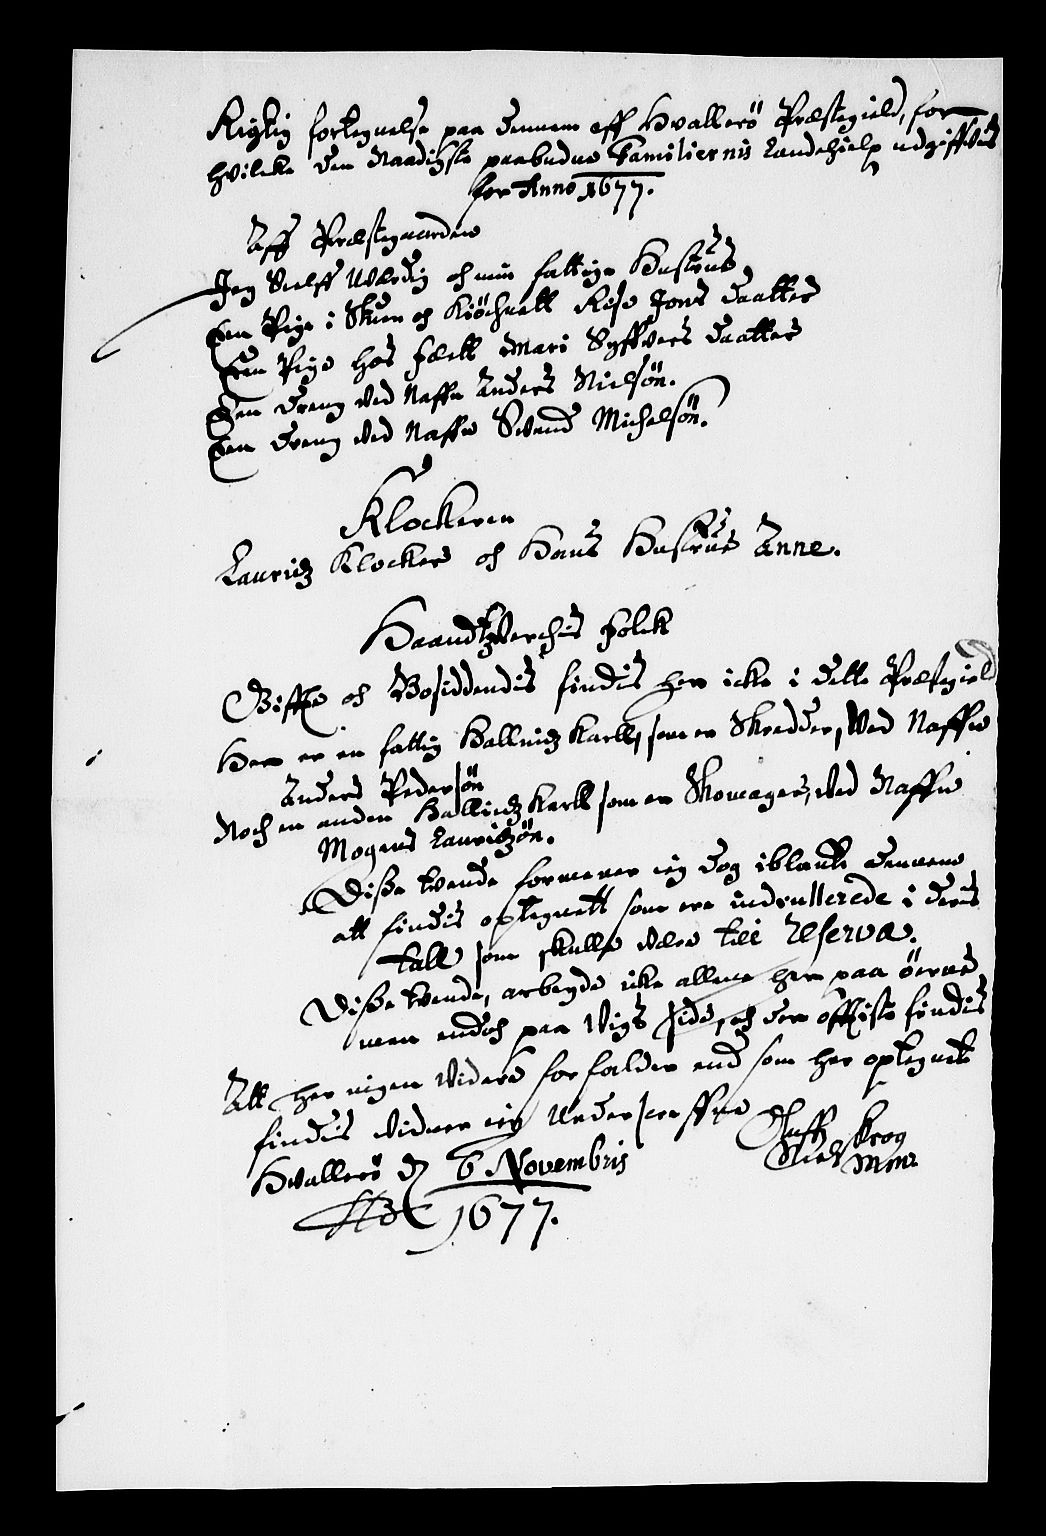 Rigtig fortegnelse paa dennem aff Hvallerö Præstegield, for
hvilcke den Naadigste paabudne Familiernis Landehielp udgiffves
for Anno 1677.
Aff Præstegaarden
Jeg Sielff Uværdig och min fattige Hustrue
Een Pige i Stuen och Kiöchnett Rise Jons daatter
Een Pige hos fæett Mari Syffvers daatter
Een dreng ved Naffn Anders Nielsön.
Een dreng ved Naffn Svend Michelsön.
Klockeren
Lauridz Klocker och Hans Hustrue Anne.
Haandtverchis folck
Giffte och Bosiddendis findis her icke i dette Præstegield
Her er en fattig Hallnidz Karll, som er Skredder, Ved Naffn
Anders Pedersön
Noch en anden Hallindz Karll som er Skomager, ved Naffn
Mogens Lauridzön.
Disse tvende formener ieg dog iblant dennem
att findis optegnett som ere indrullerede i deris
tall som skulle være till Reserva.
Disse tvende, arbeyde icke allene her paa öerne,
men endoch paa Vigs side, och der offtiste findis
Att her ingen videre forfalder end som her optegnett
findis vidner ieg underschreffne
Hvallerö d 6 Novembris
1677.
Oluff Krog
Nielss